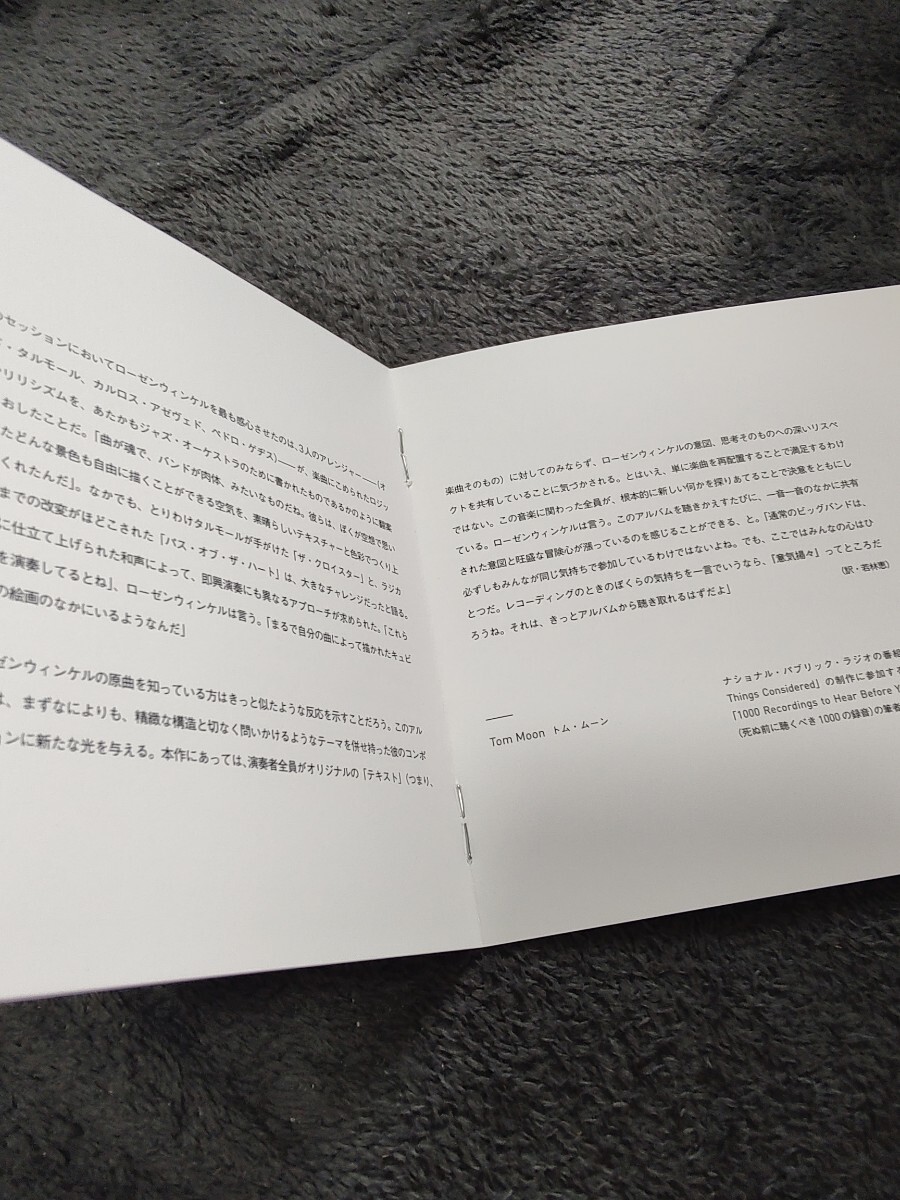 のセッションにおいてローゼンウィンケルを最も感心させたのは、3人のアレンジャー――(オ
・タルモール、カルロス・アゼヴェド、ペドロ・ゲデス)――が、楽曲にこめられたロジッ
リリシズムを、あたかもジャズ・オーケストラのために書かれたものであるかのように翻案
おしたことだ。「曲が魂で、バンドが肉体、みたいなものだね。彼らは、ぼくが空想で思い
たどんな景色も自由に描くことができる空気を、素晴らしいテキスチャーと色彩でつくり上
くれたんだ」。なかでも、とりわけタルモールが手がけた「ザ・クロイスター」と、ラジカ
までの改変がほどこされた「パス・オブ・ザ・ハート」は、大きなチャレンジだったと語る。
に仕立て上げられた和声によって、即興演奏にも異なるアプローチが求められた。「これら
を演奏してるとね」、ローゼンウィンケルは言う。「まるで自分の曲によって描かれたキュビ
の絵画のなかにいるようなんだ」
ゼンウィンケルの原曲を知っている方はきっと似たような反応を示すことだろう。このアル
は、まずなによりも、精緻な構造と切なく問いかけるようなテーマを併せ持った彼のコンポ
ョンに新たな光を与える。本作にあっては、演奏者全員がオリジナルの「テキスト」(つまり、
楽曲そのもの)に対してのみならず、ローゼンウィンケルの意図、思考そのものへの深いリスペ
クトを共有していることに気づかされる。とはいえ、単に楽曲を再配置することで満足するわけ
ではない。この音楽に関わった全員が、根本的に新しい何かを探りあてることで決意をともにし
ている。ローゼンウィンケルは言う。このアルバムを聴きかえすたびに、一音一音のなかに共有
された意図と旺盛な冒険心が漲っているのを感じることができる、と。「通常のビッグバンドは、
必ずしもみんなが同じ気持ちで参加しているわけではないよね。でも、ここではみんなの心はひ
とつだ。レコーディングのときのぼくらの気持ちを一言でいうなら、「意気揚々」ってところだ
ろうね。それは、きっとアルバムから聴き取れるはずだよ」
(訳・若林恵)
Tom Moon トム・ムーン
ナショナル・パブリック・ラジオの番組
Things Considered」の制作に参加する
「1000 Recordings to Hear Before Y
(死ぬ前に聴くべき1000の録音)の筆者